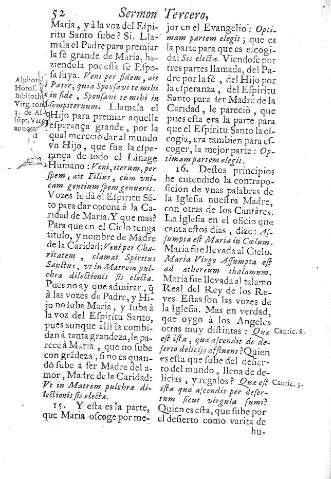 52 Sermon Tercero,
Maria, y à la voz del Espi-
ritu Santo sube? Si. Lla-
mala el Padre para premiar
la fè grande de Maria, ha-
ziendola por esta fè Espo-
sa suya. Veni per fidem, ait
Pater, quia Sponsavi te mihi
in fide, Sponsavi te mihi in
sempiternum. Llamala el
Hijo para premiar aquella
esperança grande, por la
qual mereciò dar al mundo
vn Hijo, que fue la espe-
rança de todo el Linage
Humano: Veni, iterum, per
spem, ait Filius, cum vni-
cam gentium spem genueris.
Vozes le dà el Espiritu Sã-
to para dar corona à la Ca-
ridad de Maria. Y que mas?
Para que en el Cielo tenga
titulo, y nombre de Madre
de la Caridad: Veni per Cha-
ritatem, clamat Spiritus
Sanctus, vt in Matrem pul-
chra dilectionis sis electa.
Pues no ay que admirar, q̃
à las vozes de Padre, y Hi-
jo no suba Maria, y suba à
la voz del Espiritu Santo,
pues aunque alli la combi-
dan à tanta grandeza, le pa-
rece à Maria, que no sube
con grãdeza, si no es quan-
do sube à ser Madre del a-
mor, Madre de la Caridad:
Vt in Matrem pulchra di-
lectionis sis electa.
15. Y esta es la parte,
que Maria escoge por me-
jor en el Evangelio: Opti-
mam partem elegit; que es
la parte para que es escogi-
da: Sis electa. Viendose por
tres partes llamada, del Pa-
dre por la fè, del Hijo por
la esperança, del Espiritu
Santo para ser Madre de la
Caridad, le pareciò, que
pues esta era la parte para
que el Espiritu Santo la es-
cogia, era tambien para es-
coger, la mejor parte: Op-
timam partem elegit.
16. Destos principios
he entendido la contrapo-
sicion de vnas palabras de
la Iglesia nuestra Madre,
con otras de los Cantares.
La Iglesia en el oficio que
canta estos dias, dize: As-
sumpta est Maria in Cælum.
Maria fue llevada al Cielo.
Maria Virgo Assumpta est
ad æthereum thalamum.
Maria fue llevada al talamo
Real del Rey de los Re-
yes. Estas son las vozes de
la Iglesia. Mas en verdad,
que oygo à los Angeles
otras muy distintas: Quæ
est ista, quæ ascendit de de-
serto delicijs affluens? Quien
es esta que sube del desier-
to del mundo, llena de de-
licias, y regalos? Quæ est
ista quæ ascendit per deser-
tum sicut virgula fumi?
Quien es esta, que sube por
el desierto como varita de
hu-
Cantic. 8.
Cantic. 3.